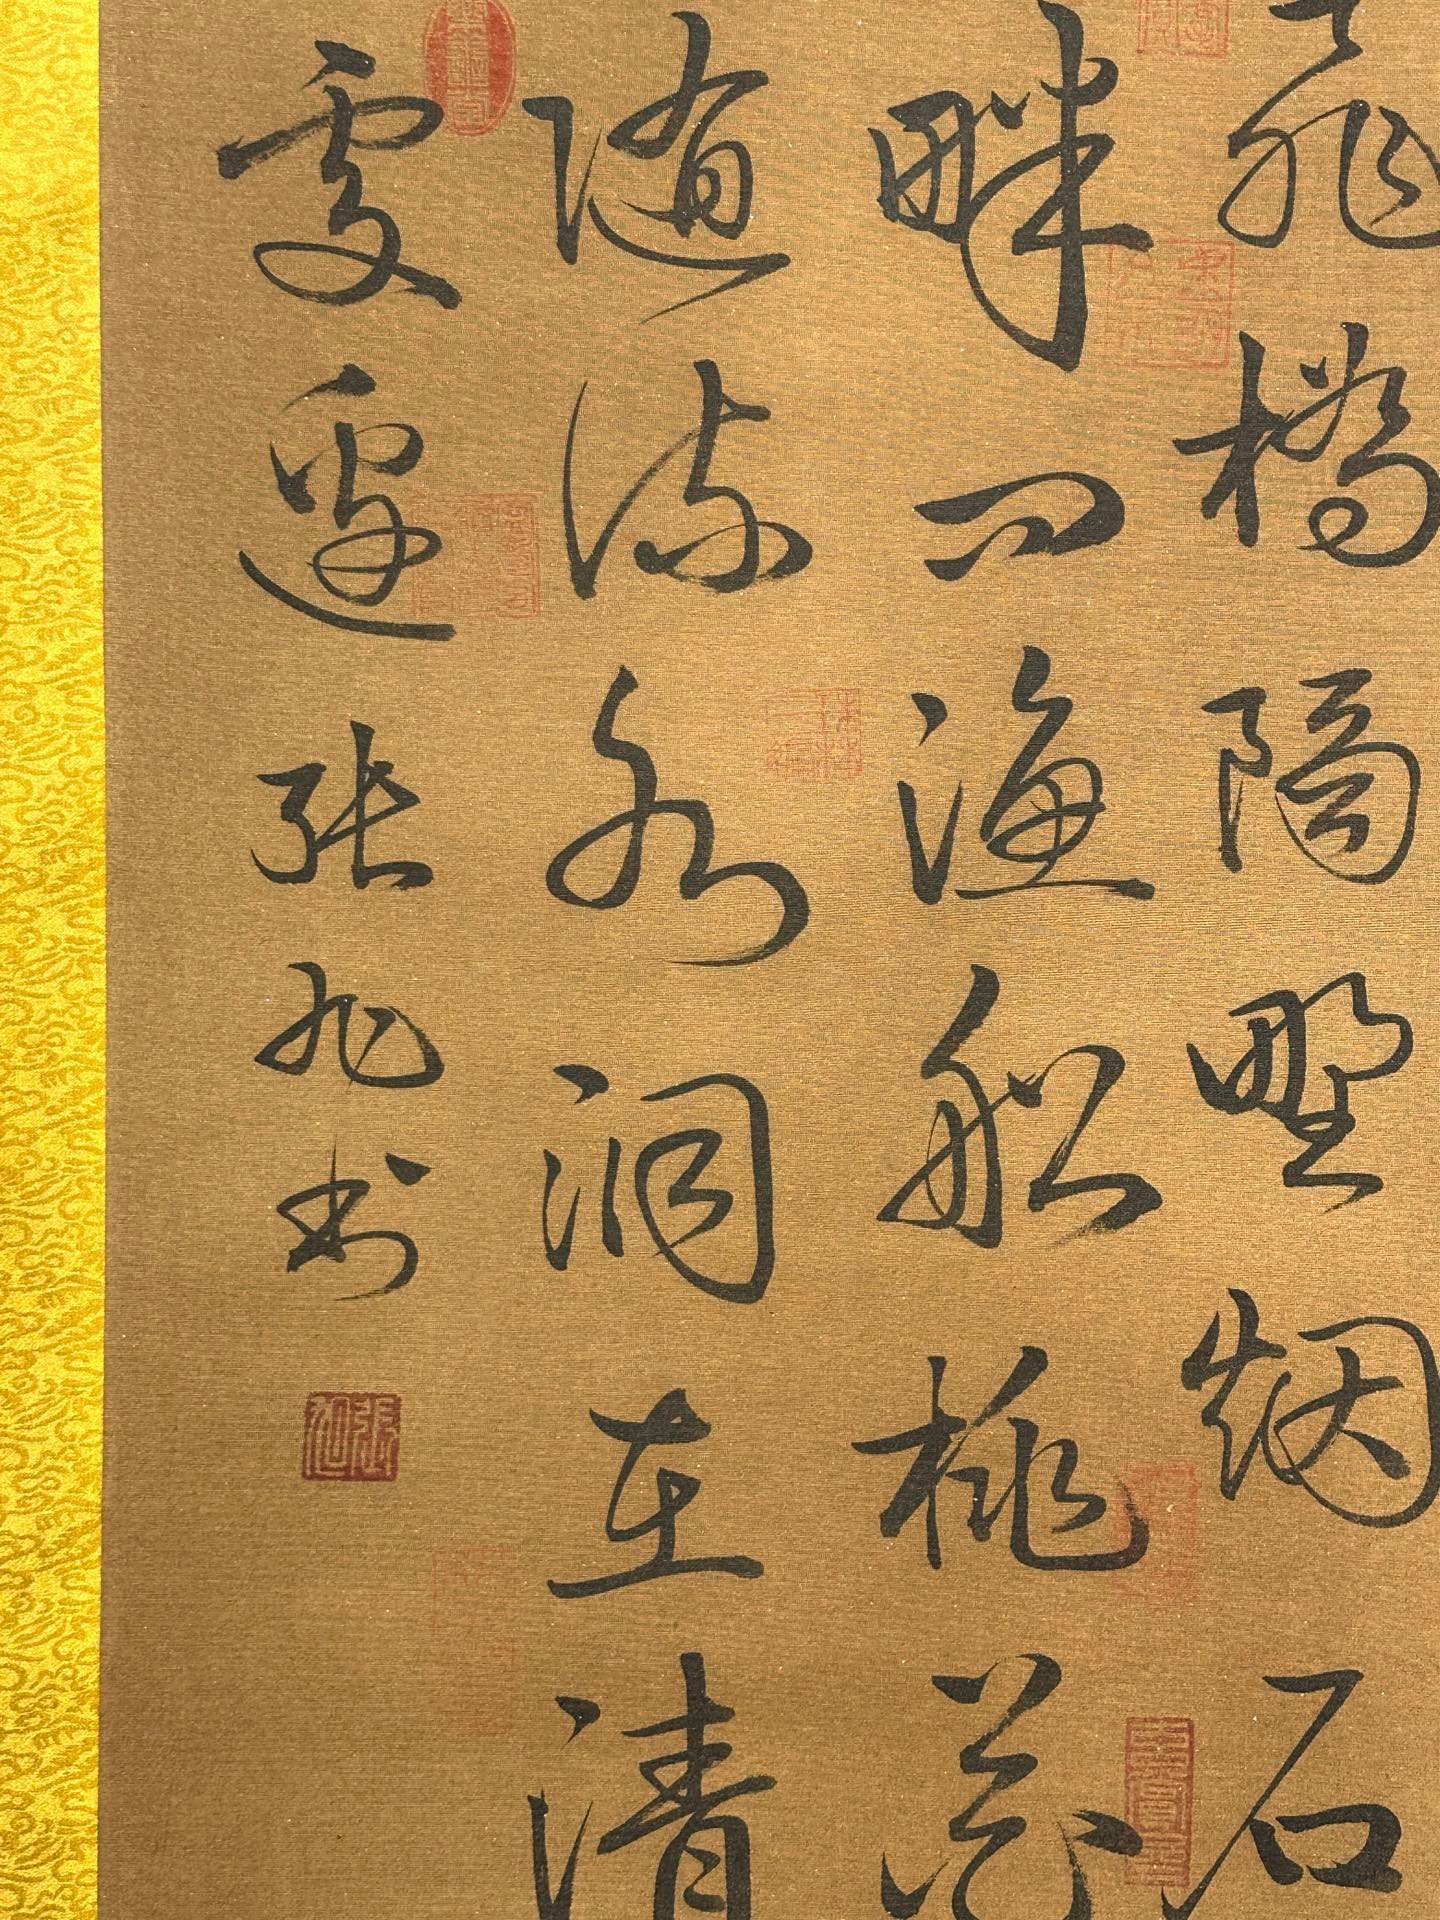 飛橋隔野烟石
畔問漁船桃花
隨流水洞在清
處邊張旭書
張旭